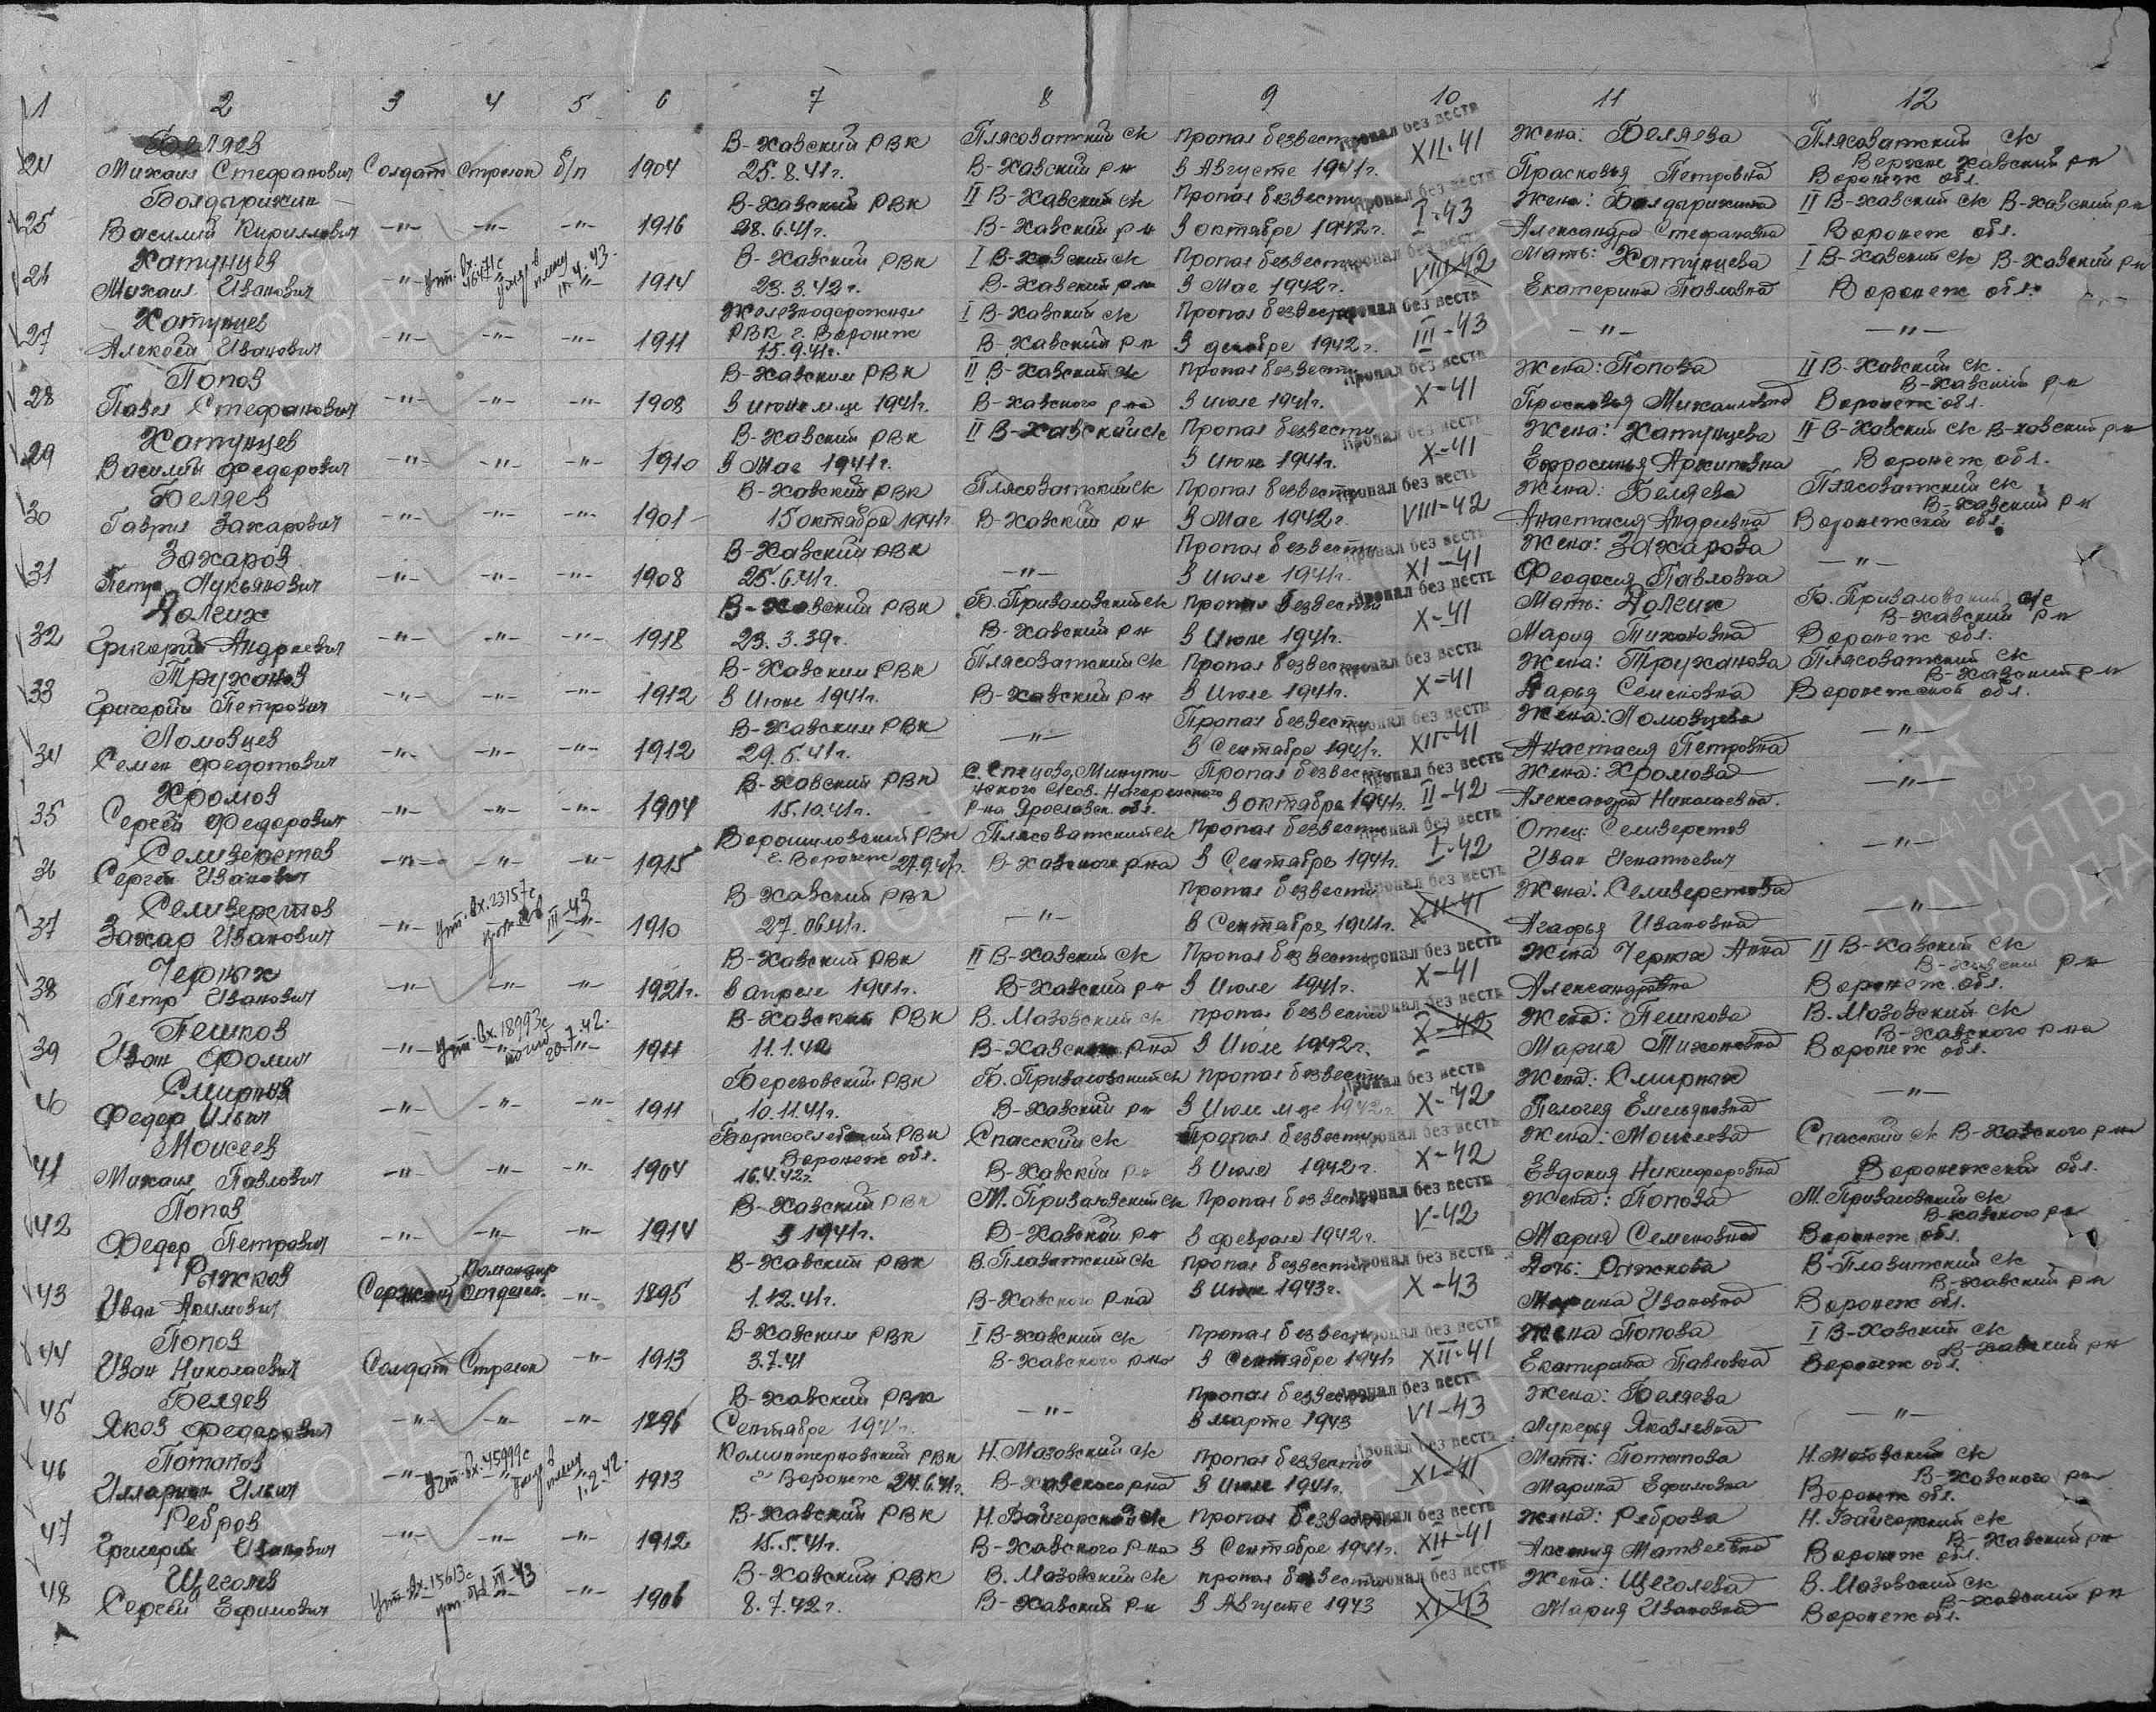 1 2 3 4 5 6 7 8 9 10 11 12
24 Беляев Михаил Стефанович Солдат Стрелок б/п 1904 В-Хавский РВК 25.8.41г. Плясоватский с/с В-Хавский р-н Пропал безвести в Августе 1941г. Пропал без вести XII-41 Жена: Беляева Прасковья Петровна Плясоватский с/с Верхне Хавский р-н Воронеж обл.
25 Болдарихин Василий Кириллович -"- -"- -"- 1916 В-Хавский РВК 28.6.41г. II В-Хавский с/с В-Хавский р-н Пропал безвести в октябре 1942г. Пропал без вести I-43 Жена: Болдарихина Александра Стефановна II В-Хавский с/с В-Хавский р-н Воронеж обл.
26 Хатунцев Михаил Иванович -"- -"- 1914 В-Хавский РВК 23.3.42г. I В-Хавский с/с В-Хавский р-н Пропал безвести в Мае 1942г. Пропал без вести VIII-42 Мать: Хатунцева Екатерина Павловна I В-Хавский с/с В-Хавский р-н Воронеж обл.
27 Хатунцев Алексей Иванович -"- -"- -"- 1911 Железнодорожный РВК г. Воронеж 15.9.41г. I В-Хавский с/с В-Хавский р-н Пропал безвести в декабре 1942г. Пропал без вести III-43 -"- -"-
28 Попов Павел Стефанович -"- -"- -"- 1908 В-Хавский РВК в июне м-це 1941г. II В-Хавский с/с В-Хавского р-на Пропал безвести в июле 1941г. Пропал без вести X-41 Жена: Попова Просковья Михаиловна II В-Хавский с/с. В-Хавский р-н Воронеж обл.
29 Хатунцев Василий Федорович -"- -"- -"- 1910 В-Хавский РВК в Мае 1941г. II В-Хавский с/с Пропал безвести в Июле 1941г. Пропал без вести X-41 Жена: Хатунцева Ефросинья Архиповна II В-Хавский с/с В-Хавский р-н Воронеж обл.
30 Беляев Гаврил Захарович -"- -"- -"- 1901 В-Хавский РВК 15 октября 1941г. Плясоватский с/с В-Хавский р-н Пропал безвести в Мае 1942г. Пропал без вести VIII-42 Жена: Беляева Анастасия Андреевна Плясоватский с/с В-Хавский р-н Воронежской обл.
31 Захаров Петр Лукьянович -"- -"- -"- 1908 В-Хавский РВК 25.6.41г. -"- Пропал безвести в Июле 1941г. Пропал без вести XI-41 Жена: Захарова Феодосия Павловна -"-
32 Долгих Григорий Андреевич -"- -"- -"- 1918 В-Хавский РВК 23.3.39г. Б. Приваловский с/с В-Хавский р-н Пропал безвести в Июле 1941г. Пропал без вести X-41 Мать: Долгих Мария Тихоновна Б. Приваловский с/с В-Хавский р-н Воронеж обл.
33 Труханов Григорий Петрович -"- -"- -"- 1912 В-Хавским РВК в Июне 1941г. Плясоватский с/с В-Хавский р-н Пропал безвести в Июле 1941г. Пропал без вести X-41 Жена: Труханова Дарья Семеновна Плясоватский с/с В-Хавский р-н Воронежской обл.
34 Ломовцев Семен Федотович -"- -"- -"- 1912 В-Хавским РВК 29.6.41г. -"- Пропал безвести в Сентябре 1941г. Пропал без вести XII-41 Жена: Ломовцева Анастасия Петровна -"-
35 Хромов Сергей Федорович -"- -"- -"- 1904 В-Хавский РВК 15.10.41г. р-на Ярославск. обл. Пропал безвести в октябре 1941г. Пропал без вести II-42 Жена: Хромова Александра Николаевна. -"-
36 Селиверстов Сергей Иванович -"- -"- -"- 1915 Ворошиловский РВК г. Воронеж 27.9.41г. Плясоватский с/с В-Хавского р-на Пропал безвести в Сентябре 1941г. Пропал без вести I-42 Отец: Селиверстов Иван Игнатьевич -"-
37 Селиверстов Захар Иванович -"- Учт. Вх. 23157с III-43 -"- 1910 В-Хавский РВК 27.06.41г. -"- Пропал безвести в Сентябре 1941г. Пропал без вести XII-41 Жена: Селиверстова Агафья Ивановна -"-
38 Черных Петр Иванович -"- -"- -"- 1921г. В-Хавский РВК в апреле 1941г. II В-Хавский с/с В-Хавский р-н Пропал безвести в Июле 1941г. Пропал без вести X-41 Жена Черных Анна Александровна II В-Хавский с/с В-Хавский р-н Воронеж. обл.
39 Пешков Иван Фомич -"- Учт. Вх. 18993с погиб 20.7.42. -"- 1911 В-Хавский РВК 11.1.42 В. Мазовский с/с В-Хавского р-на Пропал безвести в Июле 1942г. Пропал без вести X-42 Жена: Пешкова Мария Тихоновна В. Мазовский с/с В-Хавского р-на Воронеж обл.
40 Смирных Федор Ильич -"- -"- -"- 1911 Березовский РВК 10.11.41г. Б. Приваловский с/с В-Хавский р-н Пропал безвести в Июле м-це 1942г. Пропал без вести X-42 Жена: Смирных Пелогея Емельяновна -"-
41 Моисеев Михаил Павлович -"- -"- -"- 1904 Борисоглебский РВК Воронеж обл. 16.4.42г. Спасский с/с В-Хавский р-н Пропал безвести в Июле 1942г. Пропал без вести X-42 Жена: Моисеева Евдокия Никифоровна Спасский с/с В-Хавского р-на Воронежской обл.
42 Попов Федор Петрович -"- -"- -"- 1914 В-Хавский РВК в 1941г. М. Приваловский с/с В-Хавский р-н Пропал безвести в феврале 1942г. Пропал без вести V-42 Жена: Попова Мария Семеновна М. Приваловский с/с В-Хавского р-н Воронеж обл.
43 Рыжков Иван Акимович Сержант Командир отделен. -"- 1895 В-Хавский РВК 1.12.41г. В. Плавитский с/с В-Хавского р-на Пропал безвести в Июле 1943г. Пропал без вести X-43 Дочь: Рыжкова Марина Ивановна В-Плавитский с/с В-Хавский р-н Воронеж обл.
44 Попов Иван Николаевич Солдат Стрелок -"- 1913 В-Хавским РВК 3.7.41 I В-Хавский с/с В-Хавского р-на Пропал безвести в Сентябре 1941г. Пропал без вести XII-41 Жена Попова Екатерина Павловна I В-Хавский с/с В-Хавский р-н Воронеж обл.
45 Беляев Яков Федорович -"- -"- -"- 1896 В-Хавский РВК Сентябре 1941г. -"- Пропал безвести в марте 1943 Пропал без вести VI-43 Жена: Беляева Лукерья Яковлевна -"-
46 Потапов Илларион Ильич -"- Учт. Вх. 45999с умер в плену 1.2.42. 1913 Коминтерновский РВК г. Воронеж 24.6.41г. Н. Мазовский с/с В-Хавского р-на Пропал безвести в Июле 1941г. Пропал без вести XI-41 Мать: Потапова Марина Ефимовна Н. Мазовский с/с В-Хавского р-н Воронеж обл.
47 Ребров Григорий Иванович -"- -"- -"- 1912 В-Хавский РВК 15.5.41г. Н. Байгорский с/с В-Хавского р-на Пропал безвести в Сентябре 1941г. Пропал без вести XII-41 Жена: Реброва Аксения Матвеевна Н. Байгорский с/с В-Хавский р-н Воронеж обл.
48 Щеголев Сергей Ефимович Учт. Вх-15613с III-43 -"- 1906 В-Хавский РВК 8.7.42г. В. Мазовский с/с В-Хавский р-н Пропал безвести в Августе 1943 Пропал без вести XI-43 Жена: Щеголева Мария Ивановна В. Мазовский с/с В-Хавский р-н Воронеж обл.
ПАМЯТЬ НАРОДА